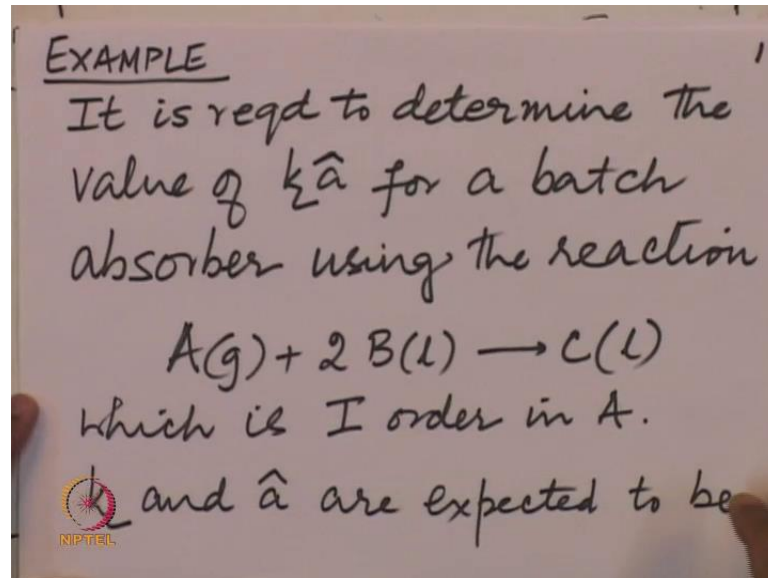 EXAMPLE 1
It is reqd to determine the
value of k_L â for a batch
absorber using the reaction
A(g) + 2 B(l) → C(l)
which is I order in A.
k_L and â are expected to be
NPTEL